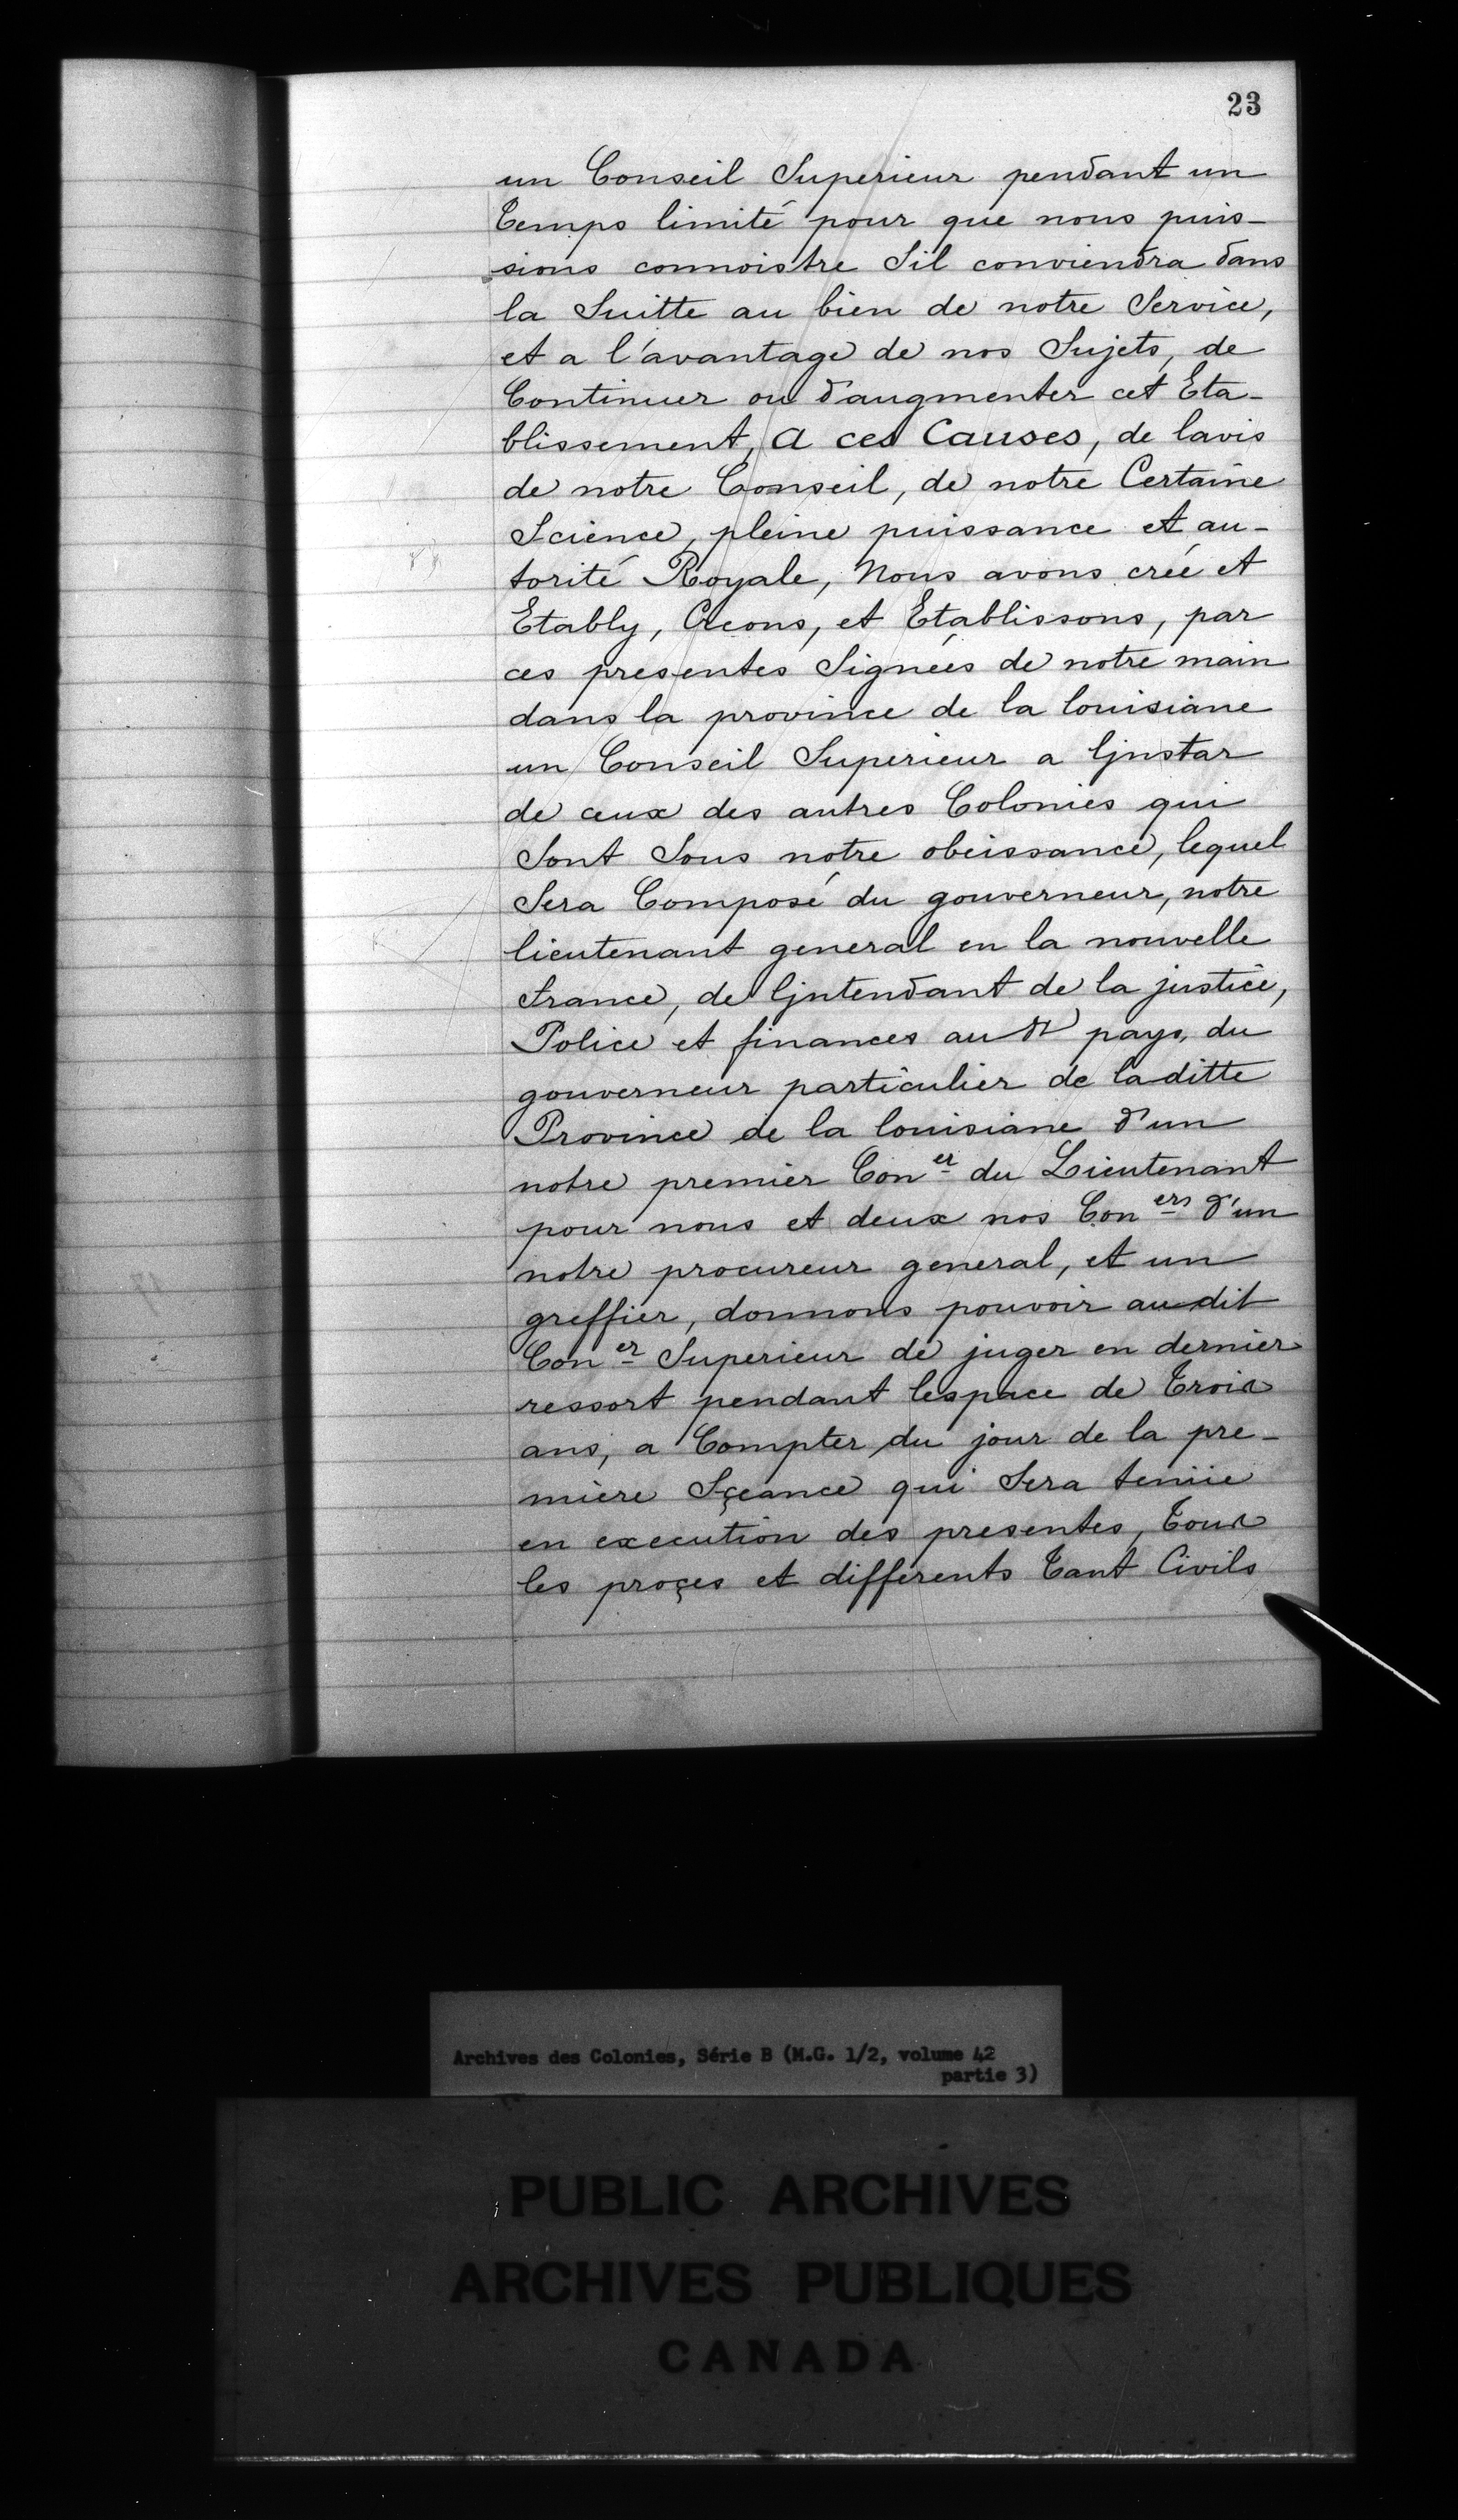 23
un Conseil Superieur pendant un
temps limité pour que nous puis-
sions connoistre Sil conviendra dans
la Suitte au bien de notre Service,
et a l'avantage de nos Sujets, de
Continuer ou d'augmenter cet Eta-
blissement, A ces Causes, de lavis
de notre Conseil, de notre Certaine
Science, pleine puissance et au-
torité Royale, Nous avons créé et
Etably, Creons, et Etablissons, par
ces presentes Signées de notre main
dans la province de la louisiane
un Conseil Superieur a ljnstar
de ceux des autres Colonies qui
Sont Sous notre obeissance, lequel
Sera Composé du gouverneur, notre
lieutenant general en la nouvelle
france, de ljntendant de la justice,
Police et finances au dt pays, du
gouverneur particulier de laditte
Province de la louisiane d'un
notre premier Con er du Lieutenant
pour nous et deux nos Con ers d'un
notre procureur general, et un
greffier, donnons pouvoir audit
Con er Superieur de juger en dernier
ressort pendant lespace de trois
ans, a Compter du jour de la pre-
miere Sçeance qui Sera tenüe
en execution des presentes, tous
les proçes et differents tant Civils
Archives des Colonies, Série B (M.G. 1/2, volume 42
partie 3)
PUBLIC ARCHIVES
ARCHIVES PUBLIQUES
CANADA